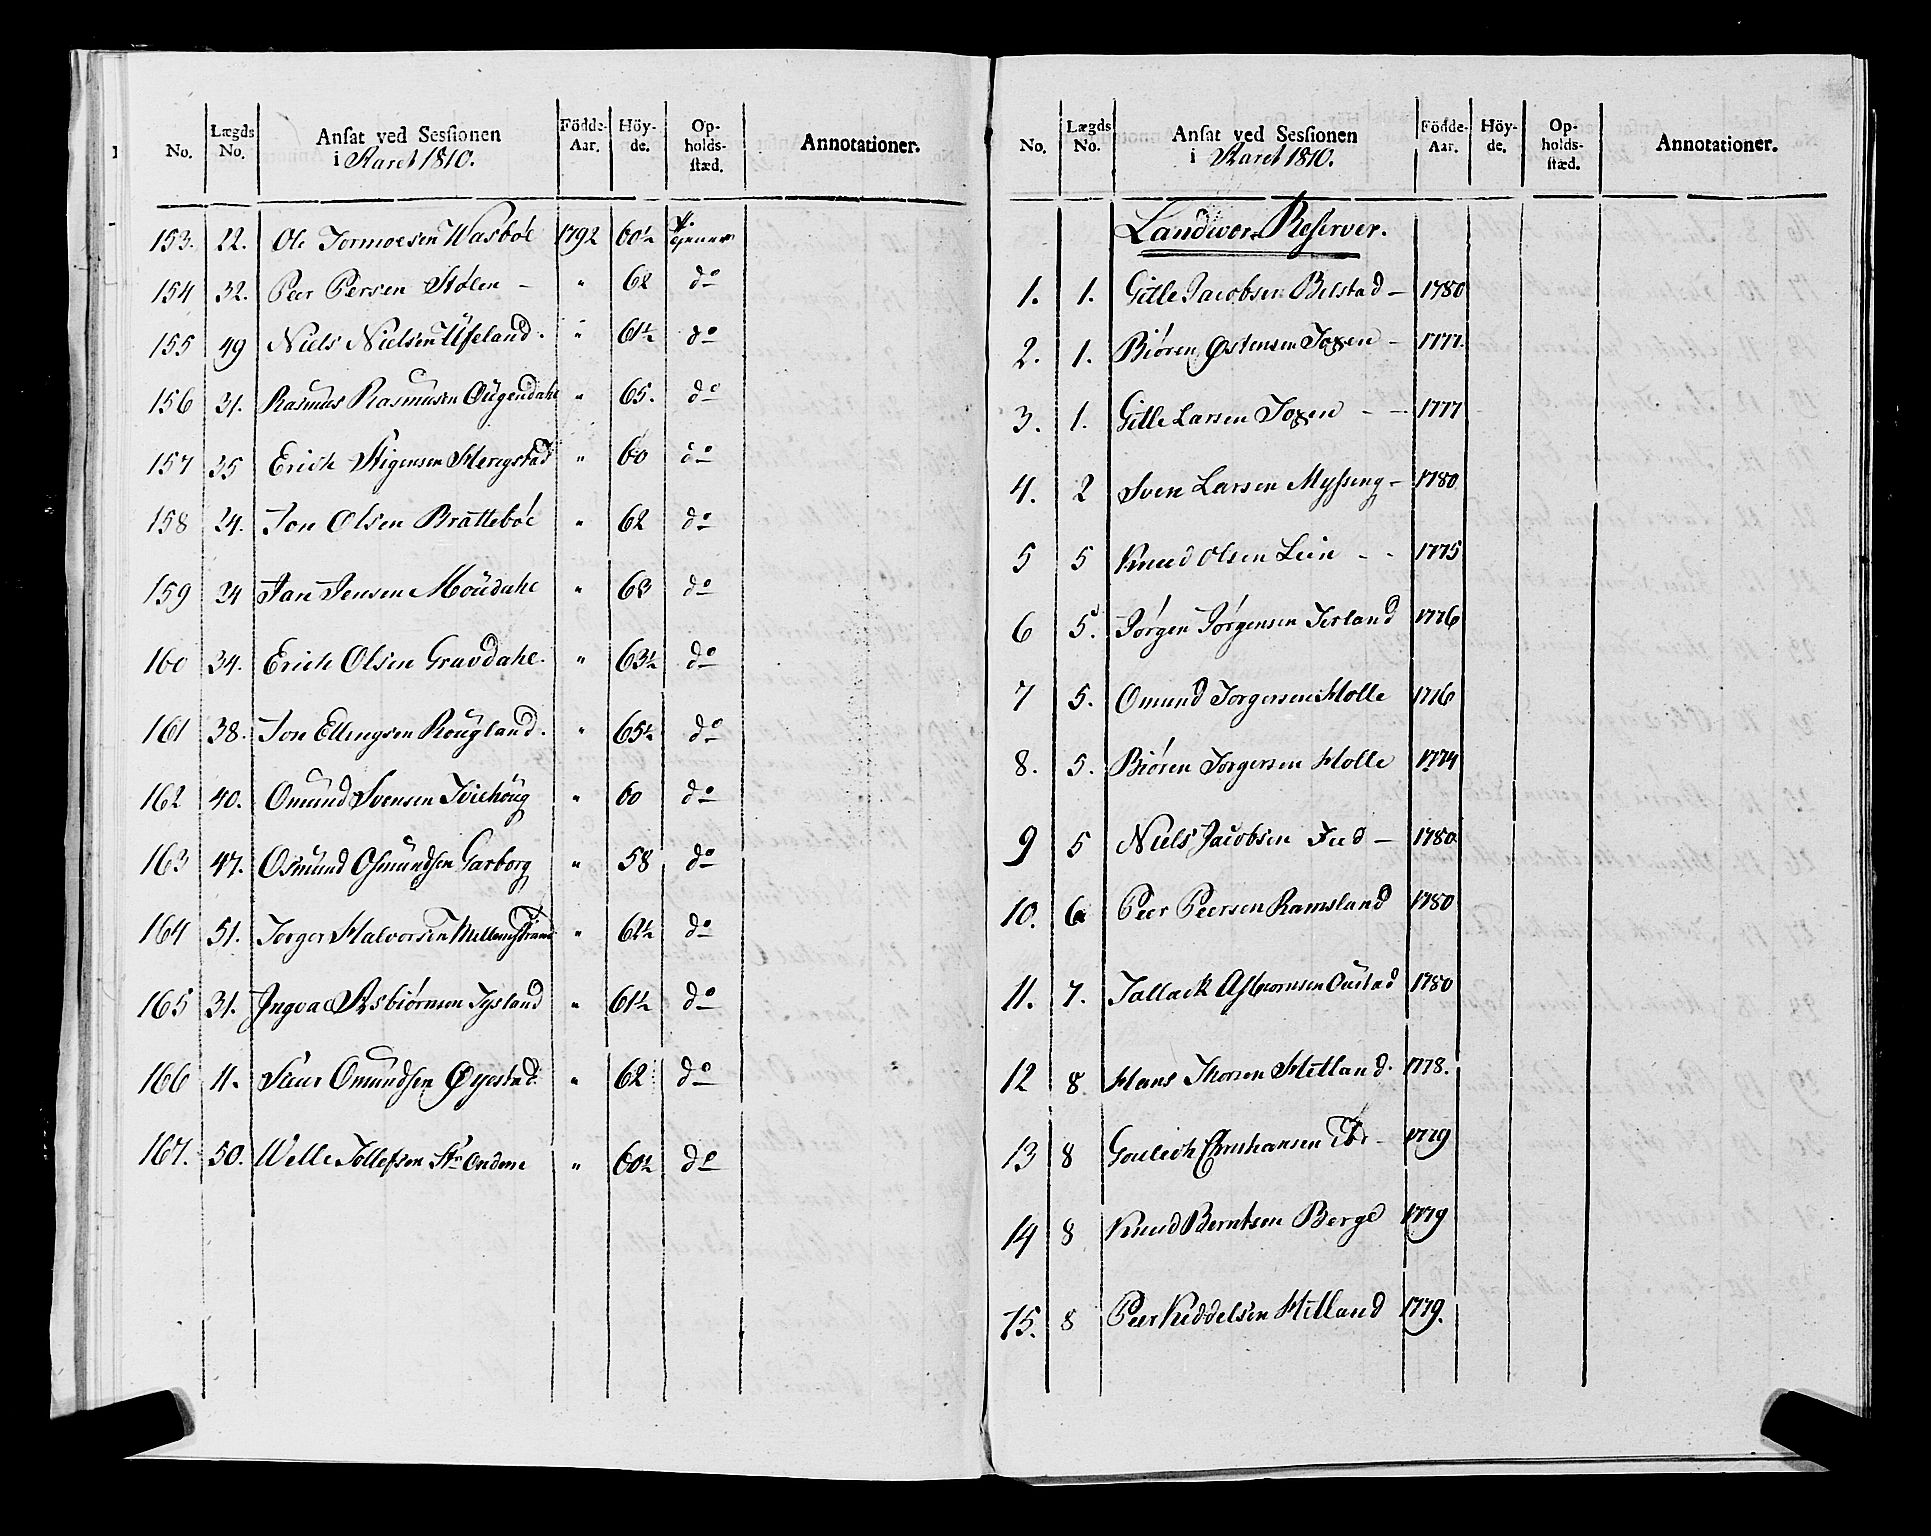 No. Lægds No. Ansat ved Sessionen i Aaret 1810. Födde-Aar. Höy-de. Op-holds-stæd. Annotationer.
153. 22. Ole Tormoesen Wasböe 1792 60½ Hiemme
154 32. Peer Persen Stølen – " 62 do
155 49 Niels Nielsen Ufeland. " 61½ do
156 31. Rasmus Rasmusen Ougendahl " 65. do
157 35 Erich Stigensen Herigstad " 60 do
158 24. Jon Olsen Bratteböe " 62 do
159 24 Jan Jensen Moudahl " 63 do
160 34. Erich Olsen Gravdahl. " 63½ do
161 38. Jon Ellingsen Rougland. " 65½ do
162 40. Omund Svensen Tviehoug " 60 do
163 47. Osmund Osmundsen Garborg " 58 do
164 51. Torger Halvorsen Mellemstrand " 62½ do
165 31. Ingvael Asbiörnsen Tysland " 61½ do
166 11. Siur Omundsen Øyestad. " 62 do
167. 50. Welle Tollefsen St. Ondene " 60½ do
No. Lægds No. Ansat ved Sessionen i Aaret 1810. Födde-Aar. Höy-de. Op-holds-stæd. Annotationer.
Landvern Reserver.
1. 1. Gitle Jacobsen Belstad – 1780
2. 1. Biören Østensen – 1777.
3. 1. Gitle Larsen – – 1777
4. 2 Sven Larsen Myssing – 1780
5 5 Knud Olsen Lein – – 1775
6 5. Jørgen Jørgensen Terland 1776
7 5. Omund Torgersen Holle 1776
8. 5. Biören Torgersen Holle 1774
9 5 Niels Jacobsen Feed – 1780
10. 6 Peer Peersen Ramsland 1780
11. 7. Tallack Asbiornsen Oustad 1780
12 8. Hans Thorsen Hetland. 1778.
13 8 Goulich Christiansen – 1779
14 8 Knud Berntsen Berge 1779
15. 8 Peer Kiddelsen Hetland 1779.